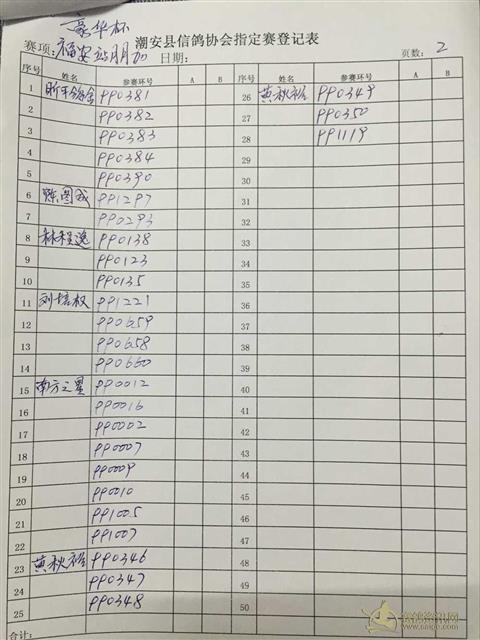 豪华杯
赛项: 福安站朋加 日期: 页数: 2
潮安县信鸽协会指定赛登记表
序号 姓名 参赛环号 A B 序号 姓名 参赛环号 A B
1 PP0381 26 黄秋裕 PP0349
2 PP0382 27 PP0350
3 PP0383 28 PP1119
4 PP0384 29
5 PP0390 30
6 陈图成 PP1297 31
7 PP0293 32
8 林程逸 PP0138 33
9 PP0123 34
10 PP0135 35
11 刘培权 PP1221 36
12 PP0659 37
13 PP0658 38
14 PP0660 39
15 南方之星 PP0012 40
16 PP0016 41
17 PP0002 42
18 PP0007 43
19 PP0009 44
20 PP0010 45
21 PP1005 46
22 PP1007 47
23 黄秋裕 PP0346 48
24 PP0347 49
25 PP0348 50
合计: